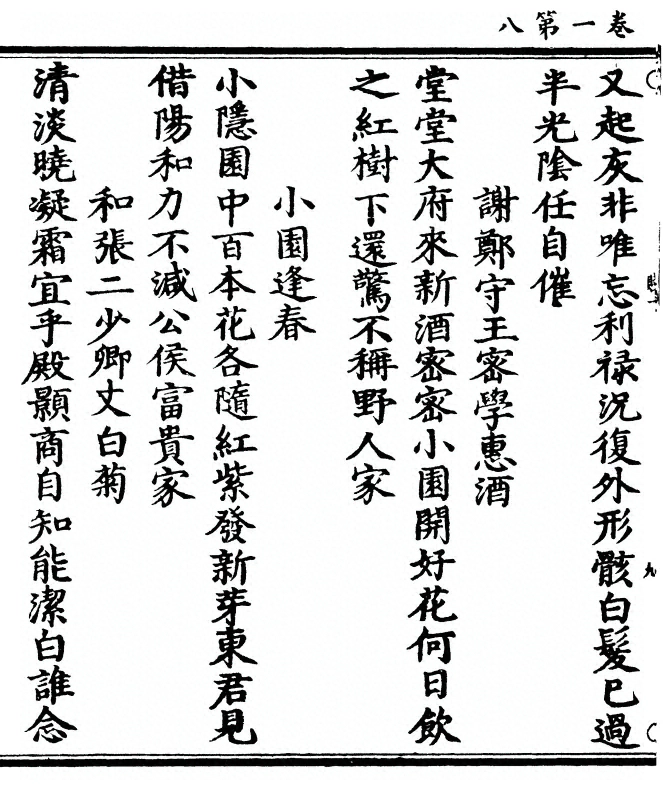 卷一第八
又起灰非唯忘利祿況復外形骸白髮已過
半光陰任自催
謝鄭守王密學惠酒
堂堂大府來新酒密密小園開好花何日飲
之紅樹下還驚不稱野人家
小園逢春
小隱園中百本花各隨紅紫發新芽東君見
借陽和力不減公侯富貴家
和張二少卿丈白菊
清淡曉凝霜宜乎殿顥商自知能潔白誰念